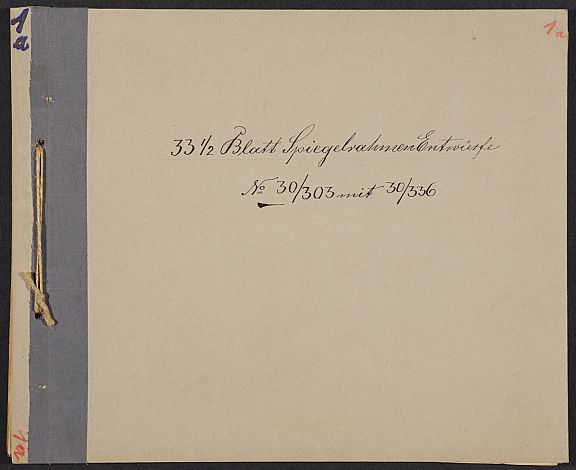 1a
1a
33 1/2 Blatt Spiegelrahmen Entwürfe
No 30/303 mit 30/336
1a